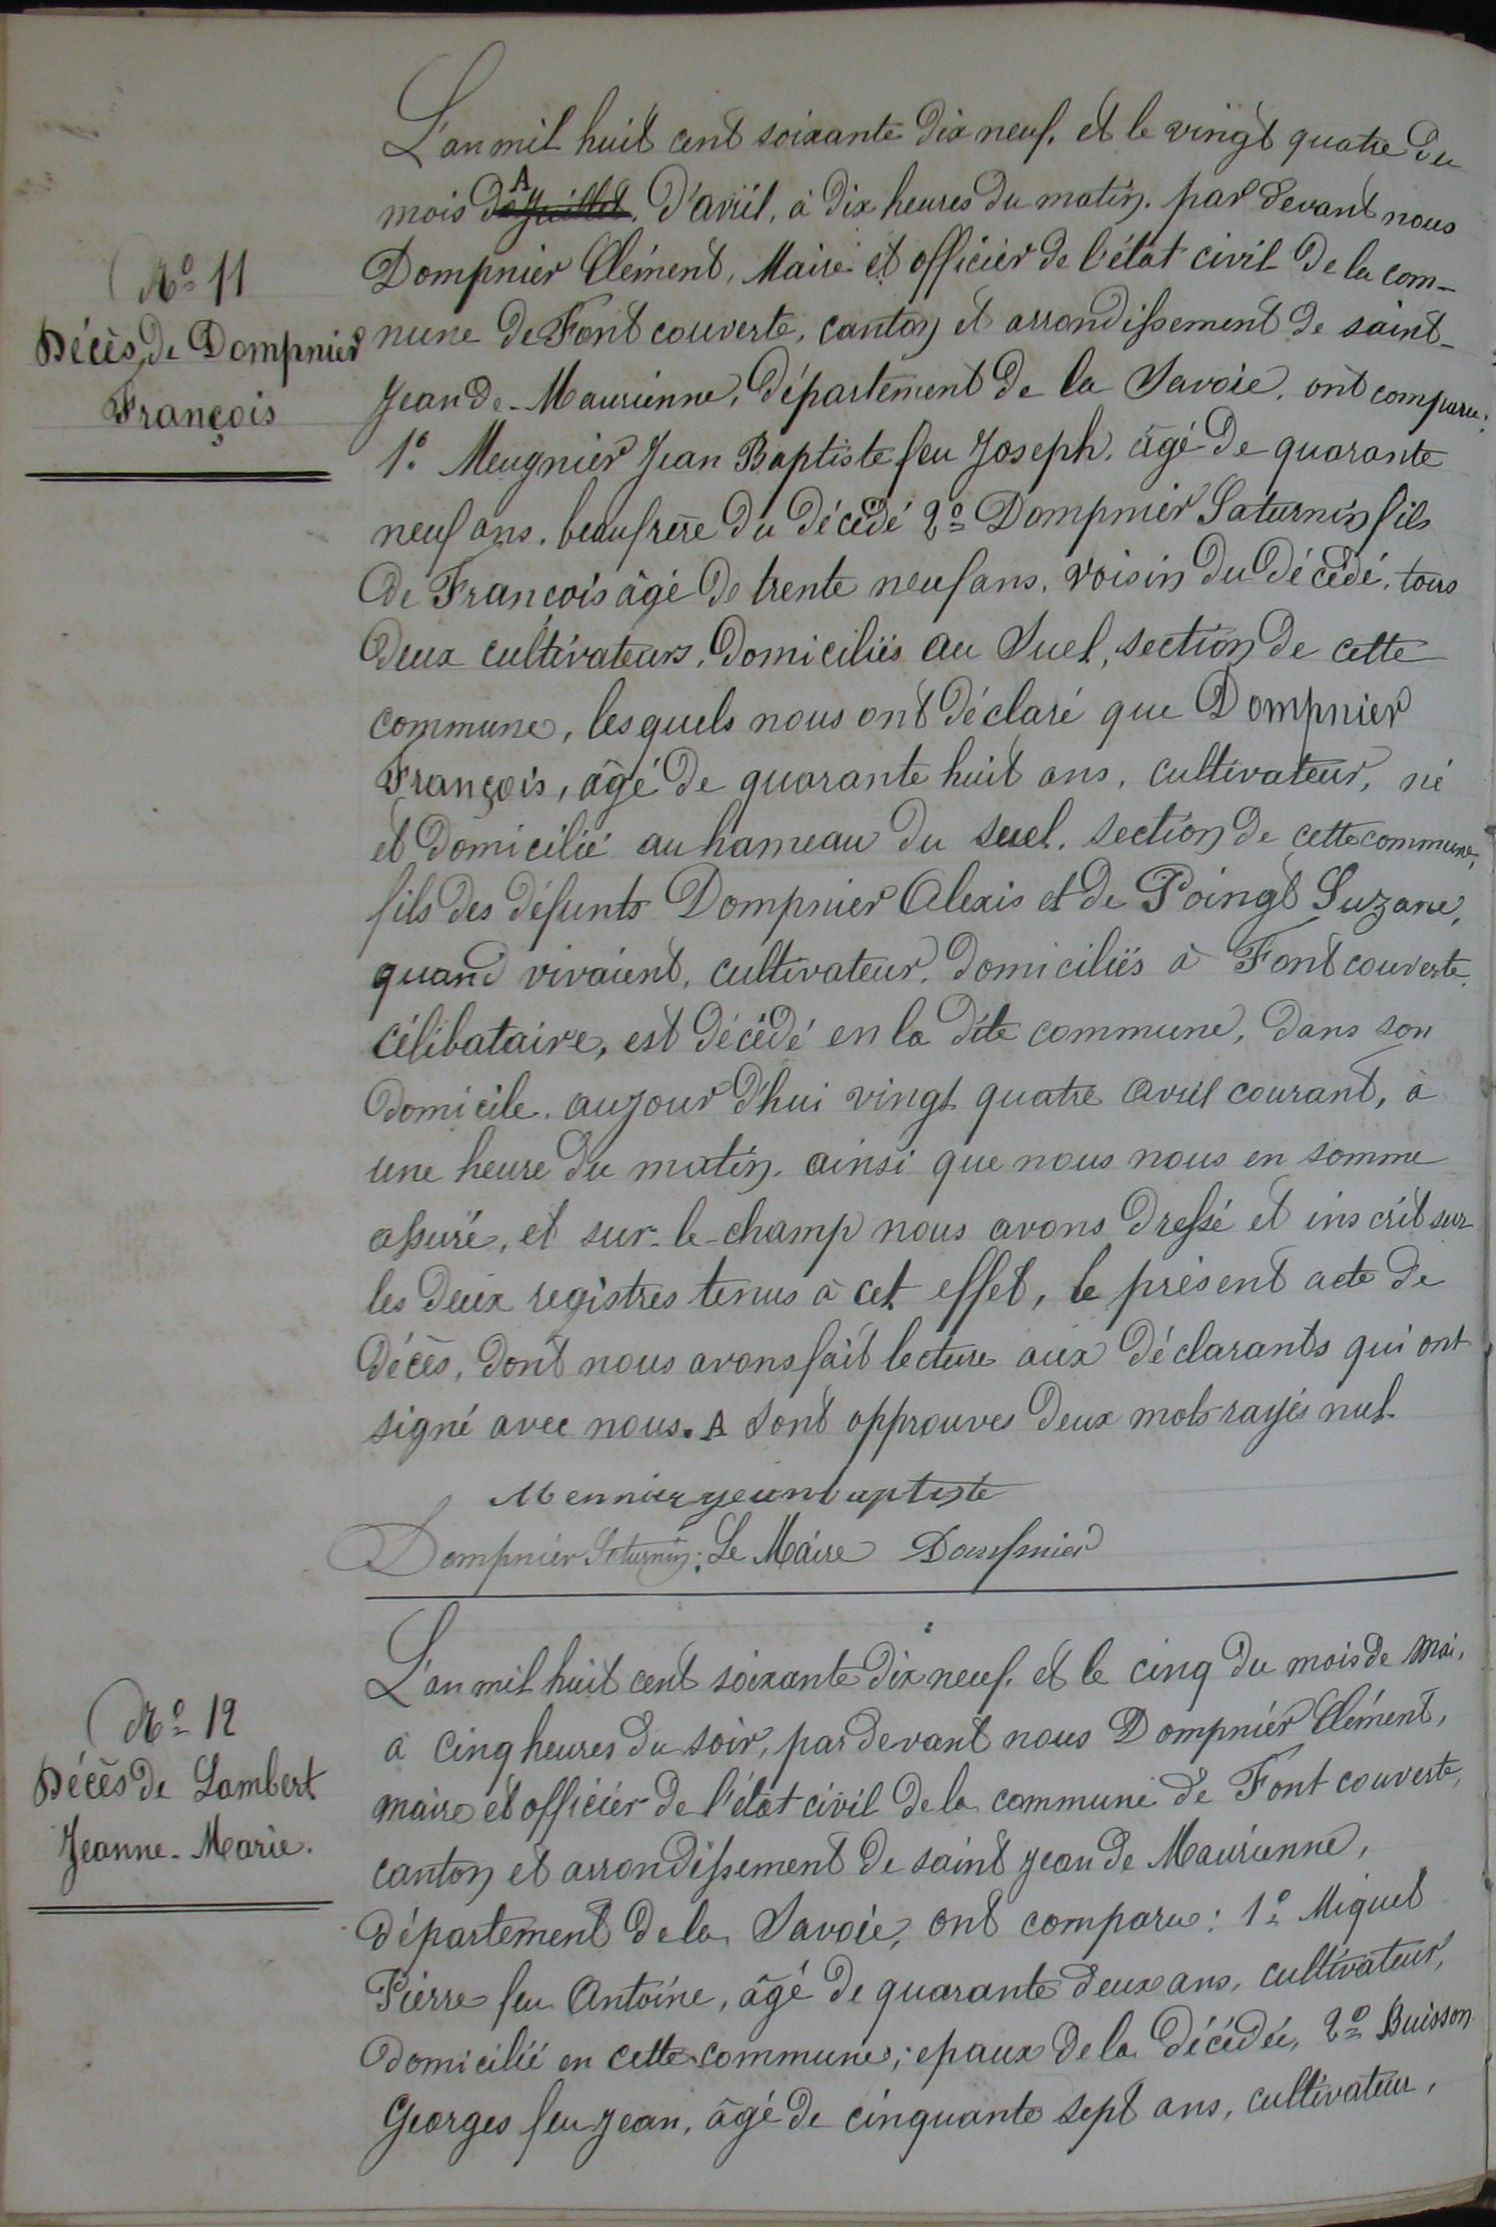 L'an mil huit cent soixante dix neuf. et le vingt quatre du
mois de Juillet. A d'avril, à dix heures du matin. par devant nous
Dompnier Clément, Maire et officier de l'état civil de la com-
mune de Font couverte, canton et arrondissement de saint-
Jean de-Maurienne, département de la Savoie, ont comparu:
N° 11
Décès de Dompnier
François
1° Meugnier Jean Baptiste feu Joseph, âgé de quarante
neuf ans, beaufrère du décédé 2° Dompnier Saturnin fils
de François âgé de trente neuf ans, voisin du décédé, tous
deux cultivateurs, domiciliés au Suel, section de cette
commune, lesquels nous ont déclaré que Dompnier
François, âgé de quarante huit ans, cultivateur, né
et domicilié au hameau du suel, section de cette commune,
fils des défunts Dompnier Alexis et de Poingt Suzane,
quand vivaient, cultivateur, domiciliés à Font couverte,
célibataire, est décédé en la dite commune, dans son
domicile, aujour d'hui vingt quatre avril courant, à
une heure du matin, ainsi que nous nous en somme
assuré, et sur-le-champ nous avons dressé et inscrit sur
les deux registres tenus à cet effet, le présent acte de
décès, dont nous avons fait lecture aux déclarants qui ont
signé avec nous. A Sont approuvés deux mots rayés nul.
Mennier jeanbaptiste
Dompnier Saturnin; Le Maire Dompnier
L'an mil huit cent soixante dix neuf. et le cinq du mois de mai,
à cinq heures du soir, par devant nous Dompnier Clément,
maire et officier de l'état civil de la commune de Font couverte,
canton et arrondissement de saint Jean de Maurienne,
département de la Savoie, ont comparu: 1° Miquet
N° 12
Décès de Lambert
Jeanne-Marie.
Pierre feu Antoine, âgé de quarante deux ans, cultivateur,
domicilié en cette commune, epaux de la décédée, 2° Buisson
Georges feu Jean, âgé de cinquante sept ans, cultivateur,